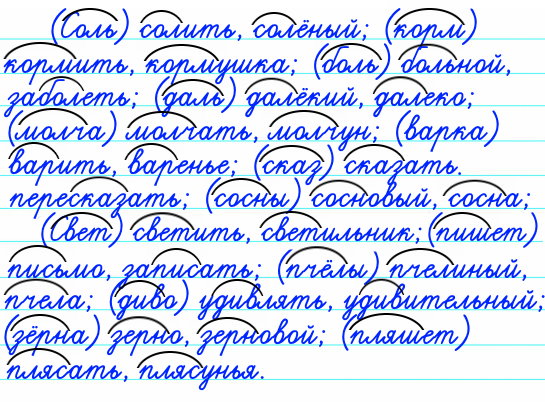 (Соль) солить, солёный; (корм)
кормить, кормушка; (боль) больной,
заболеть; (даль) далёкий, далеко;
(молча) молчать, молчун; (варка)
варить, варенье; (сказ) сказать.
пересказать; (сосны) сосновый, сосна;
(Свет) светить, светильник; (пишет)
письмо, записать; (пчёлы) пчелиный,
пчела; (диво) удивлять, удивительный;
(зёрна) зерно, зерновой; (пляшет)
плясать, плясунья.